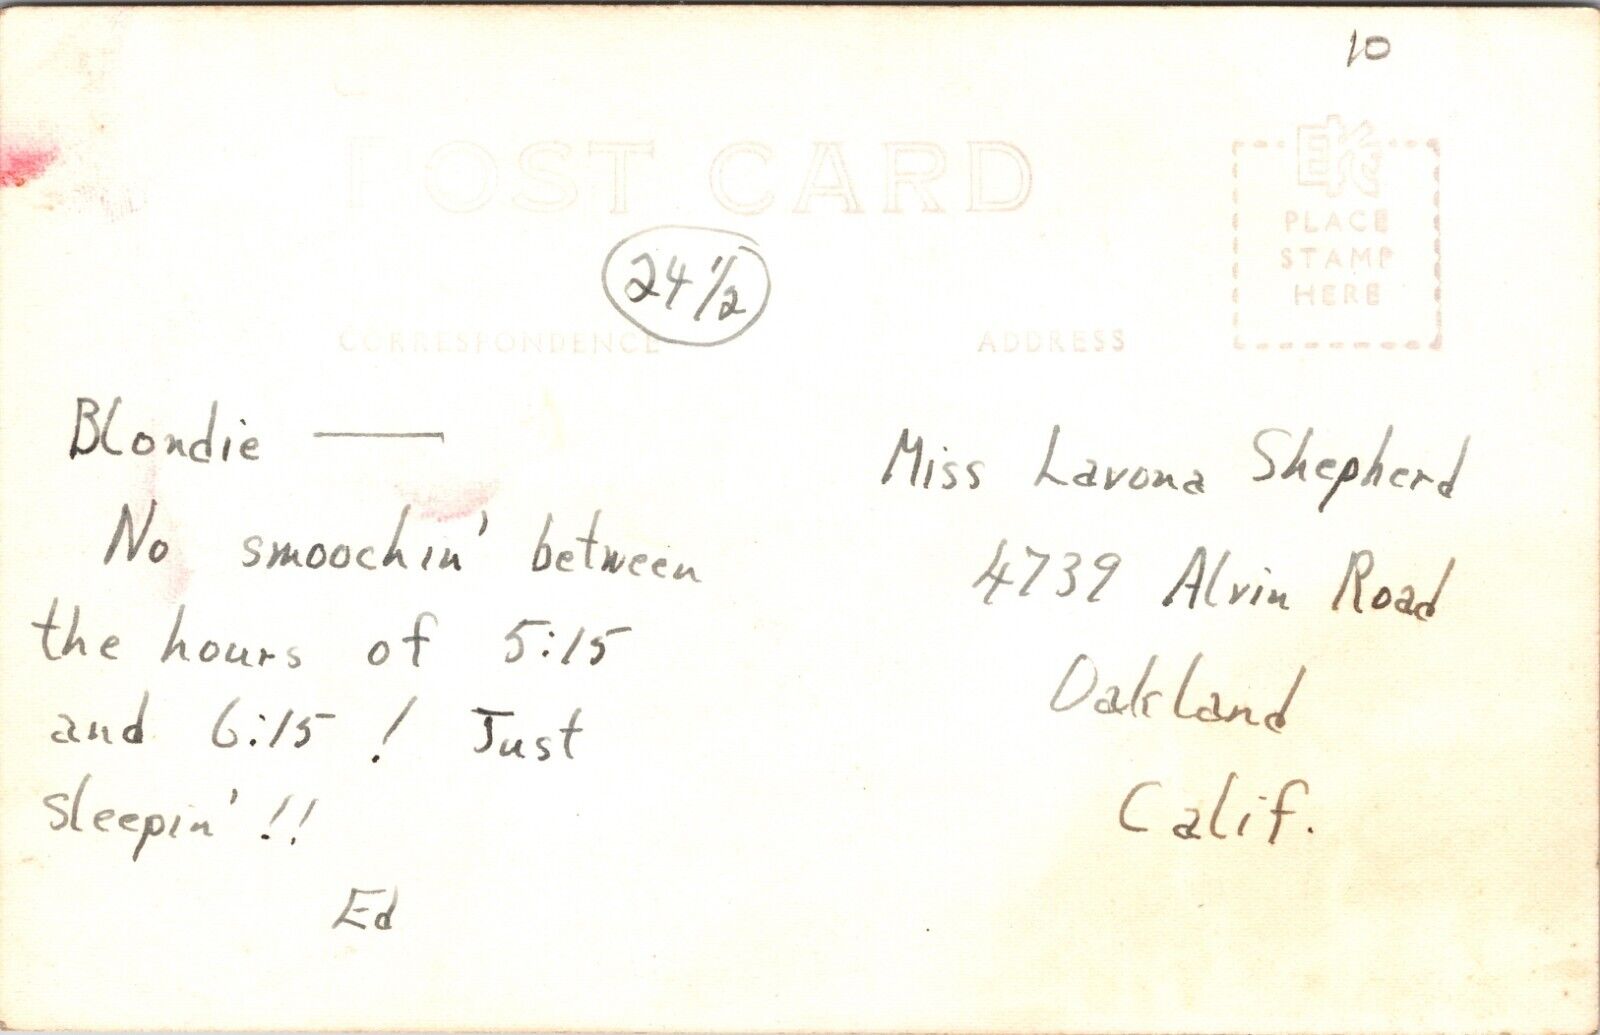 10
POST CARD
PLACE
STAMP
HERE
24 1/2
CORRESPONDENCE
ADDRESS
Blondie —
No smoochin' between
the hours of 5:15
and 6:15 ! Just
sleepin' !!
Ed
Miss Lavona Shepherd
4739 Alvin Road
Oakland
Calif.